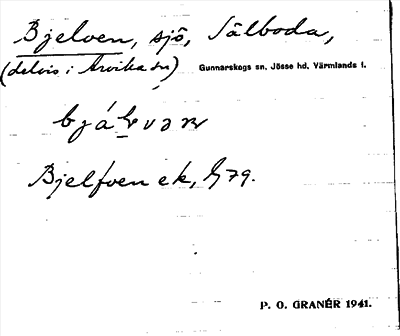 Bjelven, sjö, Sälboda,
(delvis i Arvika sn) Gunnarskogs sn, Jösse hd, Värmlands l.
Bjelfven ek, 
P. O. GRANÉR 1941.